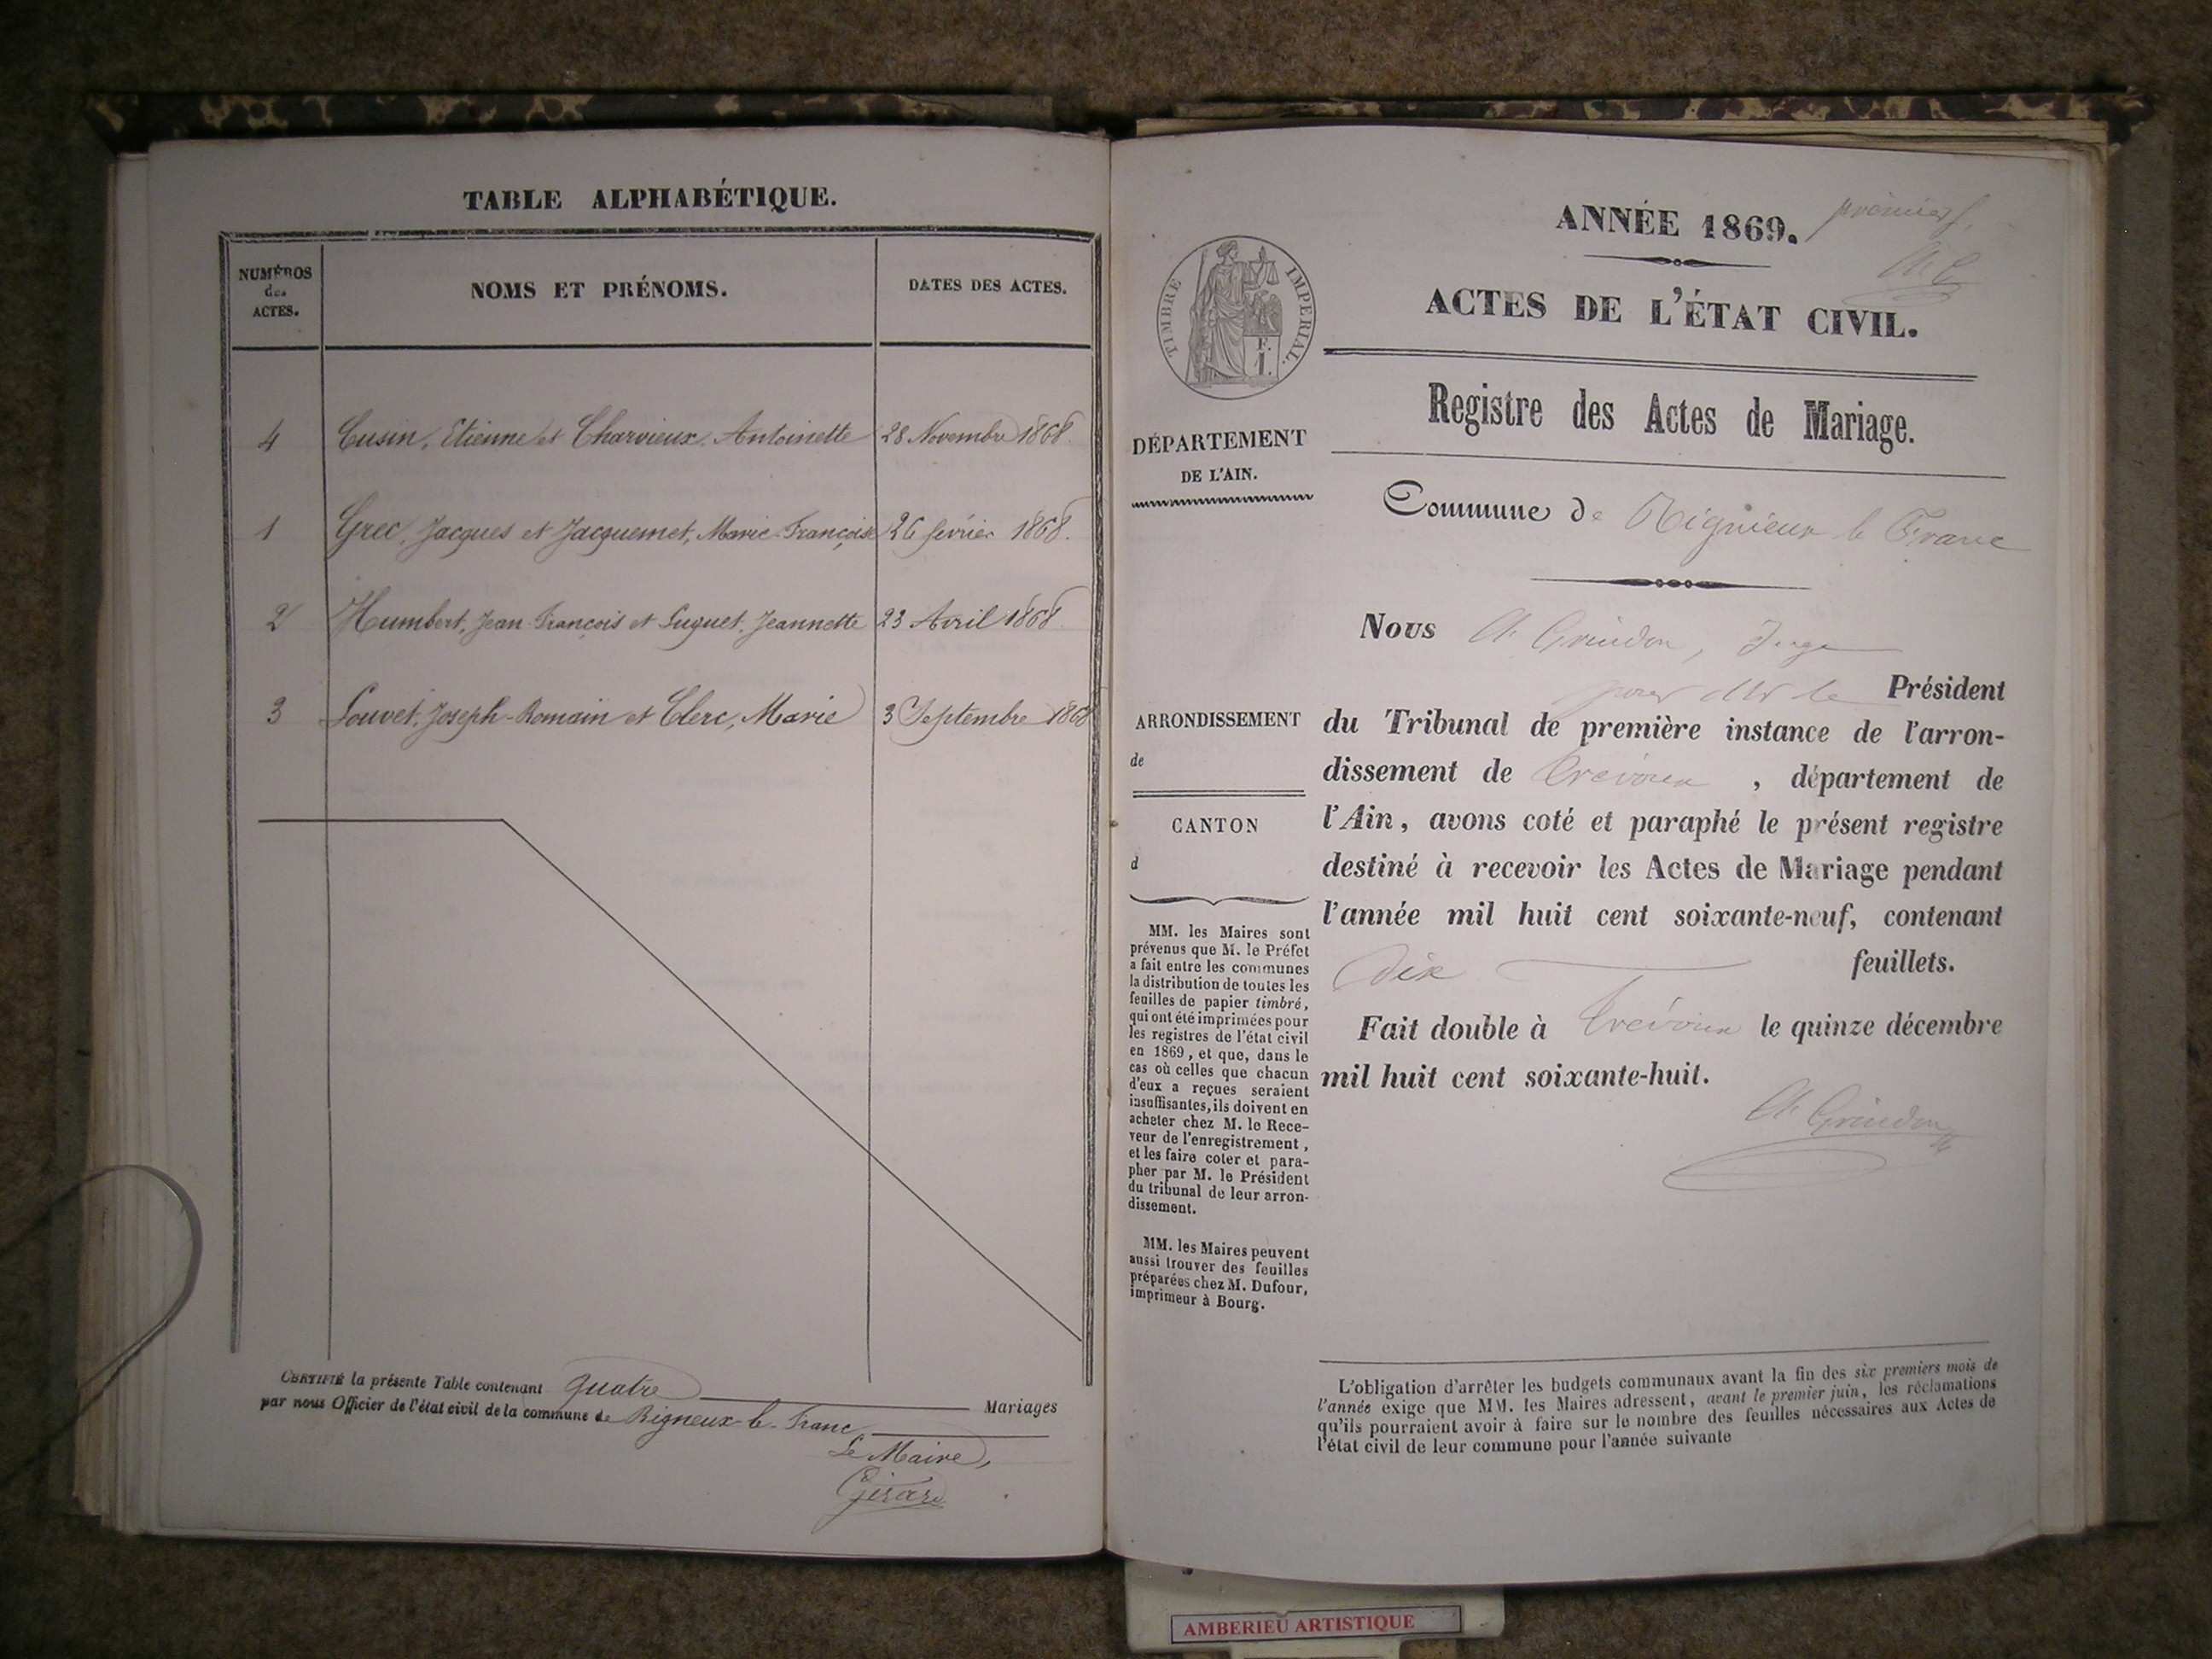 TABLE ALPHABÉTIQUE.
NUMÉROS
des
ACTES.
NOMS ET PRÉNOMS.
DATES DES ACTES.
4 Cusin, Etienne et Charvieux, Antoinette 28 Novembre 1868.
1 Grec, Jacques et Jacquemet, Marie-Françoise 26 février 1868.
2 Humbert, Jean-François et Suguet, Jeannette 23 Avril 1868.
3 Louvet, Joseph-Romain et Clerc, Marie 3 Septembre 1868
CERTIFIÉ la présente Table contenant quatre Mariages
par nous Officier de l'état civil de la commune de Rigneux-le-Franc
Le Maire,
Girard
ANNÉE 1869.
premier f.
ACTES DE L'ÉTAT CIVIL.
Registre des Actes de Mariage.
TIMBRE IMPERIAL.
F.
1.
DÉPARTEMENT
DE L'AIN.
ARRONDISSEMENT
de
CANTON
d
MM. les Maires sont
prévenus que M. le Préfet
a fait entre les communes
la distribution de toutes les
feuilles de papier timbré,
qui ont été imprimées pour
les registres de l'état civil
en 1869, et que, dans le
cas où celles que chacun
d'eux a reçues seraient
insuffisantes, ils doivent en
acheter chez M. le Rece-
veur de l'enregistrement,
et les faire coter et para-
pher par M. le Président
du tribunal de leur arron-
dissement.
MM. les Maires peuvent
aussi trouver des feuilles
préparées chez M. Dufour,
imprimeur à Bourg.
Commune de Rignieux le Franc
Nous Grindon, Juge
pour Mr le Président
du Tribunal de première instance de l'arron-
dissement de Trévoux, département de
l'Ain, avons coté et paraphé le présent registre
destiné à recevoir les Actes de Mariage pendant
l'année mil huit cent soixante-neuf, contenant
Dix feuillets.
Fait double à Trévoux le quinze décembre
mil huit cent soixante-huit.
Grindon
L'obligation d'arrêter les budgets communaux avant la fin des six premiers mois de
l'année exige que MM. les Maires adressent, avant le premier juin, les réclamations
qu'ils pourraient avoir à faire sur le nombre des feuilles nécessaires aux Actes de
l'état civil de leur commune pour l'année suivante
AMBERIEU ARTISTIQUE